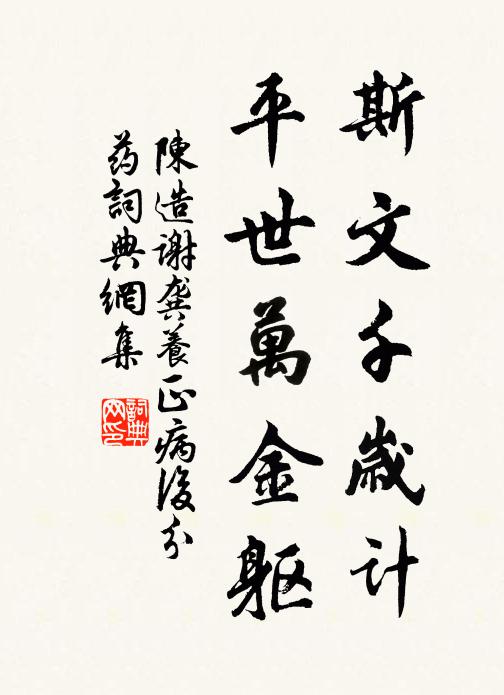 斯文千歲计
平世萬金軀
陳造謝龔養正病後分
药詞典網集
詞典
网印